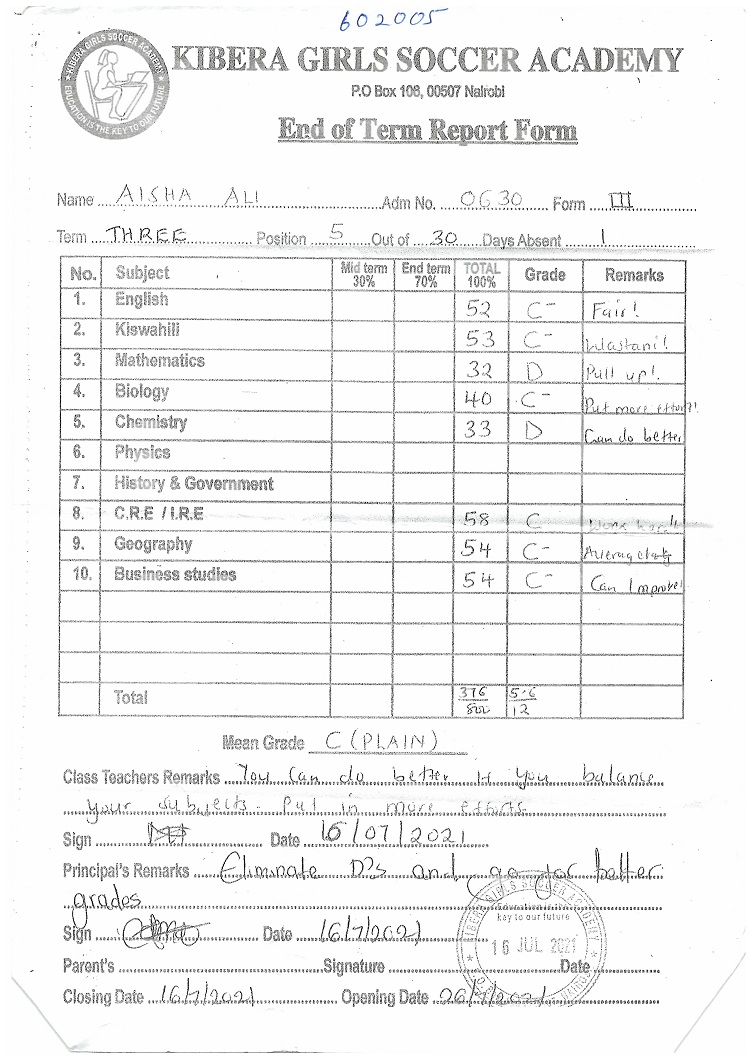 602005
KIBERA GIRLS SOCCER ACADEMY
EDUCATION IS THE KEY TO OUR FUTURE
KIBERA GIRLS SOCCER ACADEMY
P.O Box 106, 00507 Nairobi
End of Term Report Form
Name AISHA ALI Adm No. 0630 Form III
Term THREE Position 5 Out of 30 Days Absent 1
No. Subject Mid term 30% End term 70% TOTAL 100% Grade Remarks
1. English 52 C- Fair!
2. Kiswahili 53 C- Wastani!
3. Mathematics 32 D Pull up!
4. Biology 40 C- Put more effort!
5. Chemistry 33 D Can do better
6. Physics
7. History & Government
8. C.R.E / I.R.E 58 C Work hard!
9. Geography 54 C- Average
10. Business studies 54 C- Can Improve!
Total 376/800 5.6/12
Mean Grade C (PLAIN)
Class Teachers Remarks You can do better if you balance
your subjects. Put in more efforts
Sign Date 16/07/2021
Principal's Remarks Eliminate D's and go for better
grades
Sign Date 16/7/2021
KIBERA GIRLS SOCCER ACADEMY
Education is the
key to our future
16 JUL 2021
Parent's Signature Date
Closing Date 16/7/2021 Opening Date 26/7/2021